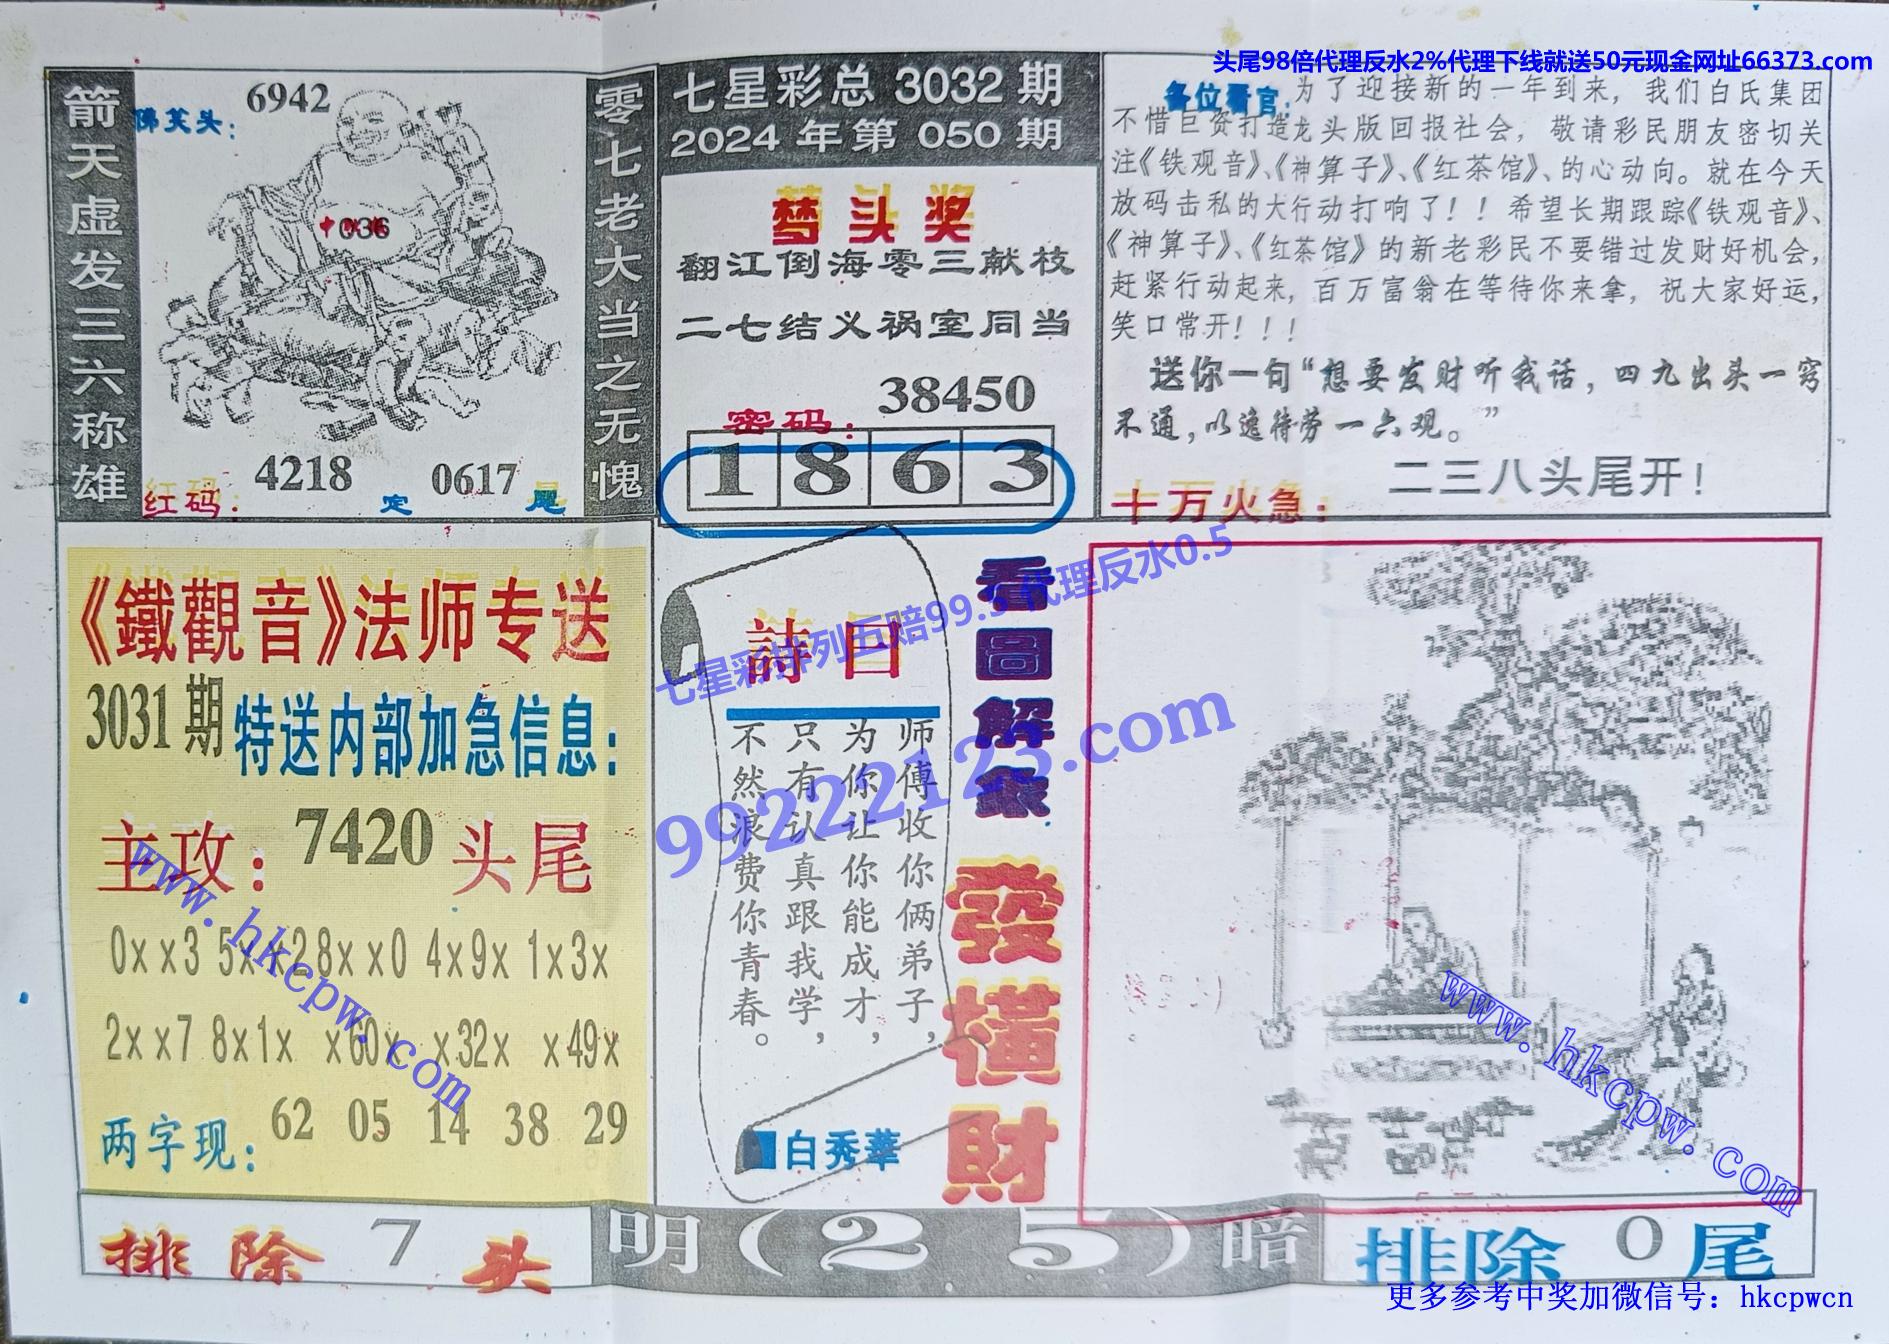 头尾98倍代理反水2%代理下线就送50元现金网址66373.com
箭天虚发三六称雄
佛笑头：
6942
中 036
红码：
4218
定
0617
尾
零七老大当之无愧
七星彩总 3032 期
2024 年第 050 期
梦头奖
翻江倒海零三献枝
二七结义祸室同当
38450
密码：
1 8 6 3
各位看官：为了迎接新的一年到来，我们白氏集团
不惜巨资打造龙头版回报社会，敬请彩民朋友密切关
注《铁观音》、《神算子》、《红茶馆》、的心动向。就在今天
放码击私的大行动打响了！！希望长期跟踪《铁观音》、
《神算子》、《红茶馆》的新老彩民不要错过发财好机会，
赶紧行动起来，百万富翁在等待你来拿，祝大家好运，
笑口常开！！！
送你一句“想要发财听我话，四九出头一穷
不通，以逸待劳一六观。”
十万火急：
二三八头尾开！
《鐵觀音》法师专送
3031 期 特送内部加急信息：
主攻：7420 头尾
0xx3 5xx2 8xx0 4x9x 1x3x
2xx7 8x1x x60x x32x x49x
两字现：
62 05 14 38 29
詩曰
师傅收你俩弟子，
为你让你能成才，
只有认真跟我学，
不然浪费你青春。
白秀華
看圖解象
發橫財
七星彩排列五赔99.5代理反水0.5
99222123.com
www.hkcpw.com
www.hkcpw.com
排除 7 头
明（2 5）暗
排除 0 尾
更多参考中奖加微信号：hkcpwcn